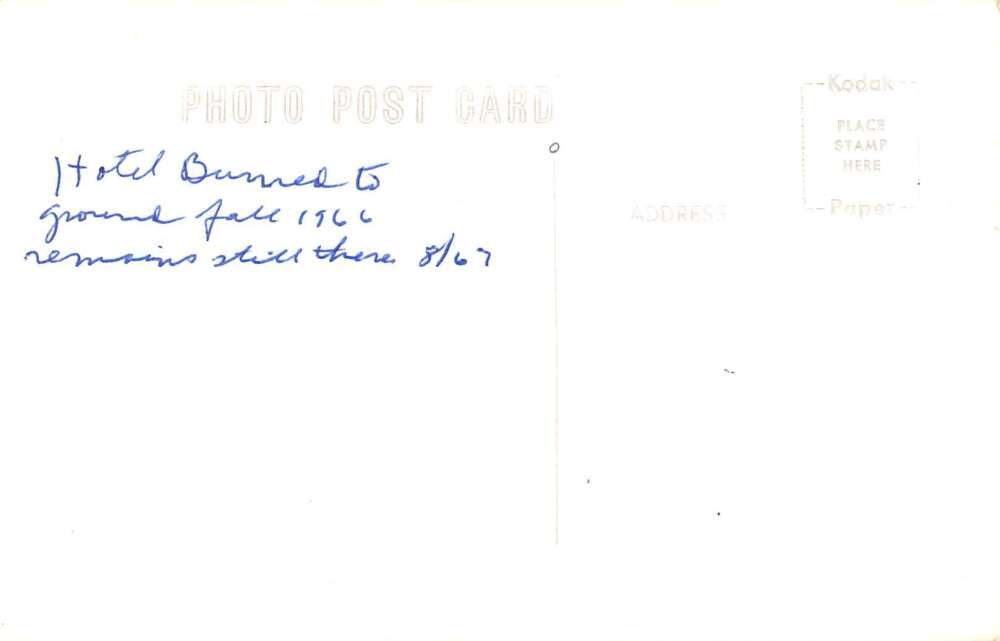 PHOTO POST CARD
Hotel Burned to
ground fall 1966
remains still there 8/67
ADDRESS
Kodak
PLACE
STAMP
HERE
Paper